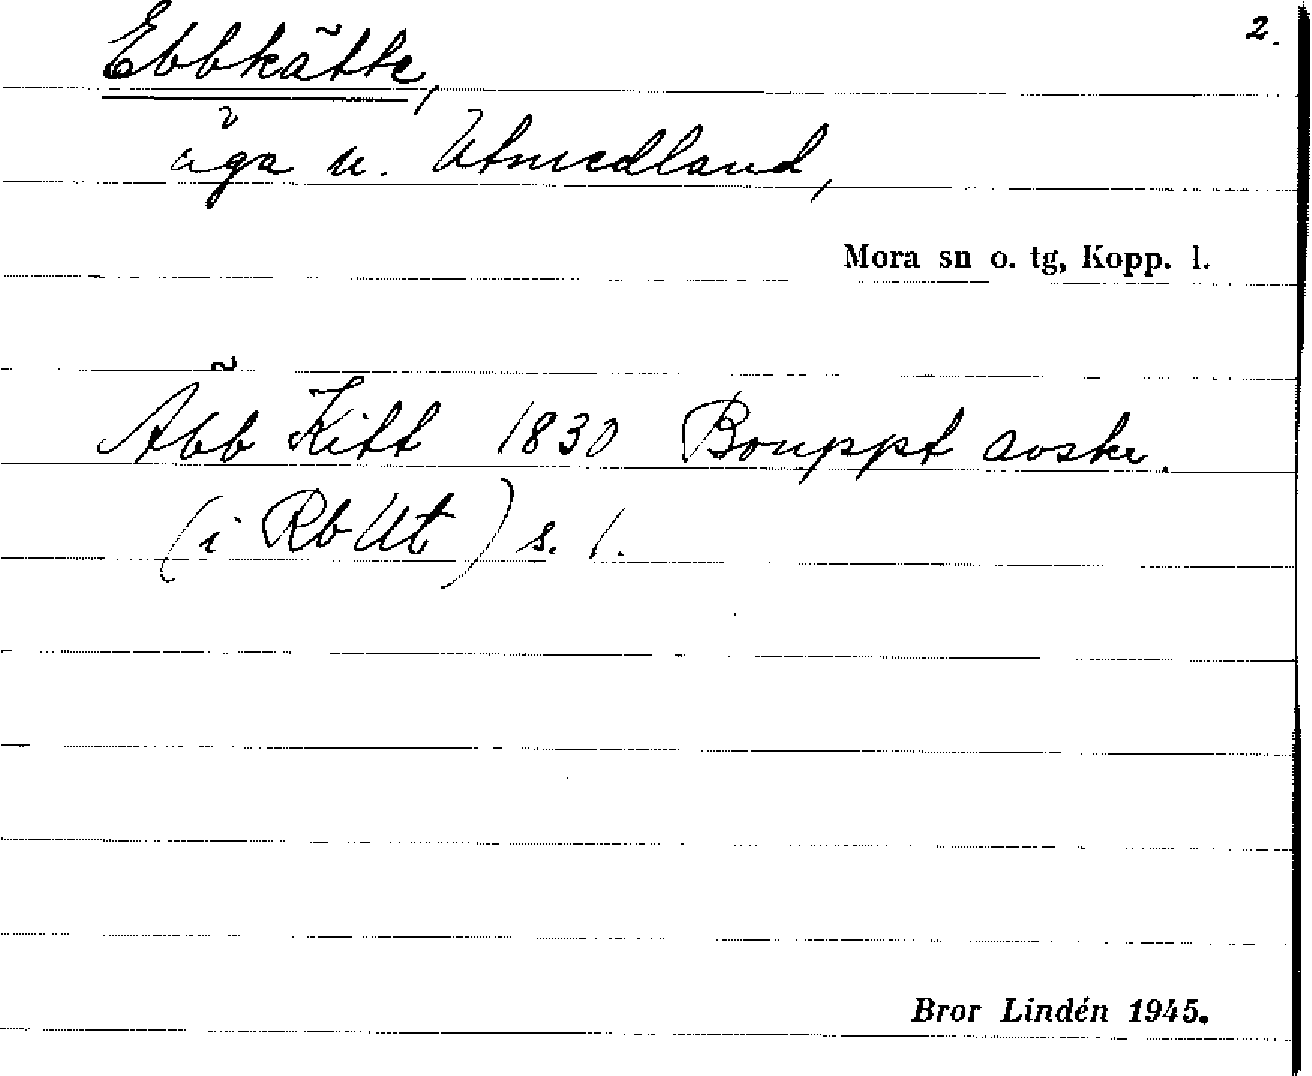 2.
Ebbkätte,
äga u. Utmedland,
Mora sn o. tg, Kopp. l.
Äbb Kitt 1830 Bouppt avskr.
(i Rb Ut) s. 1.
Bror Lindén 1945.